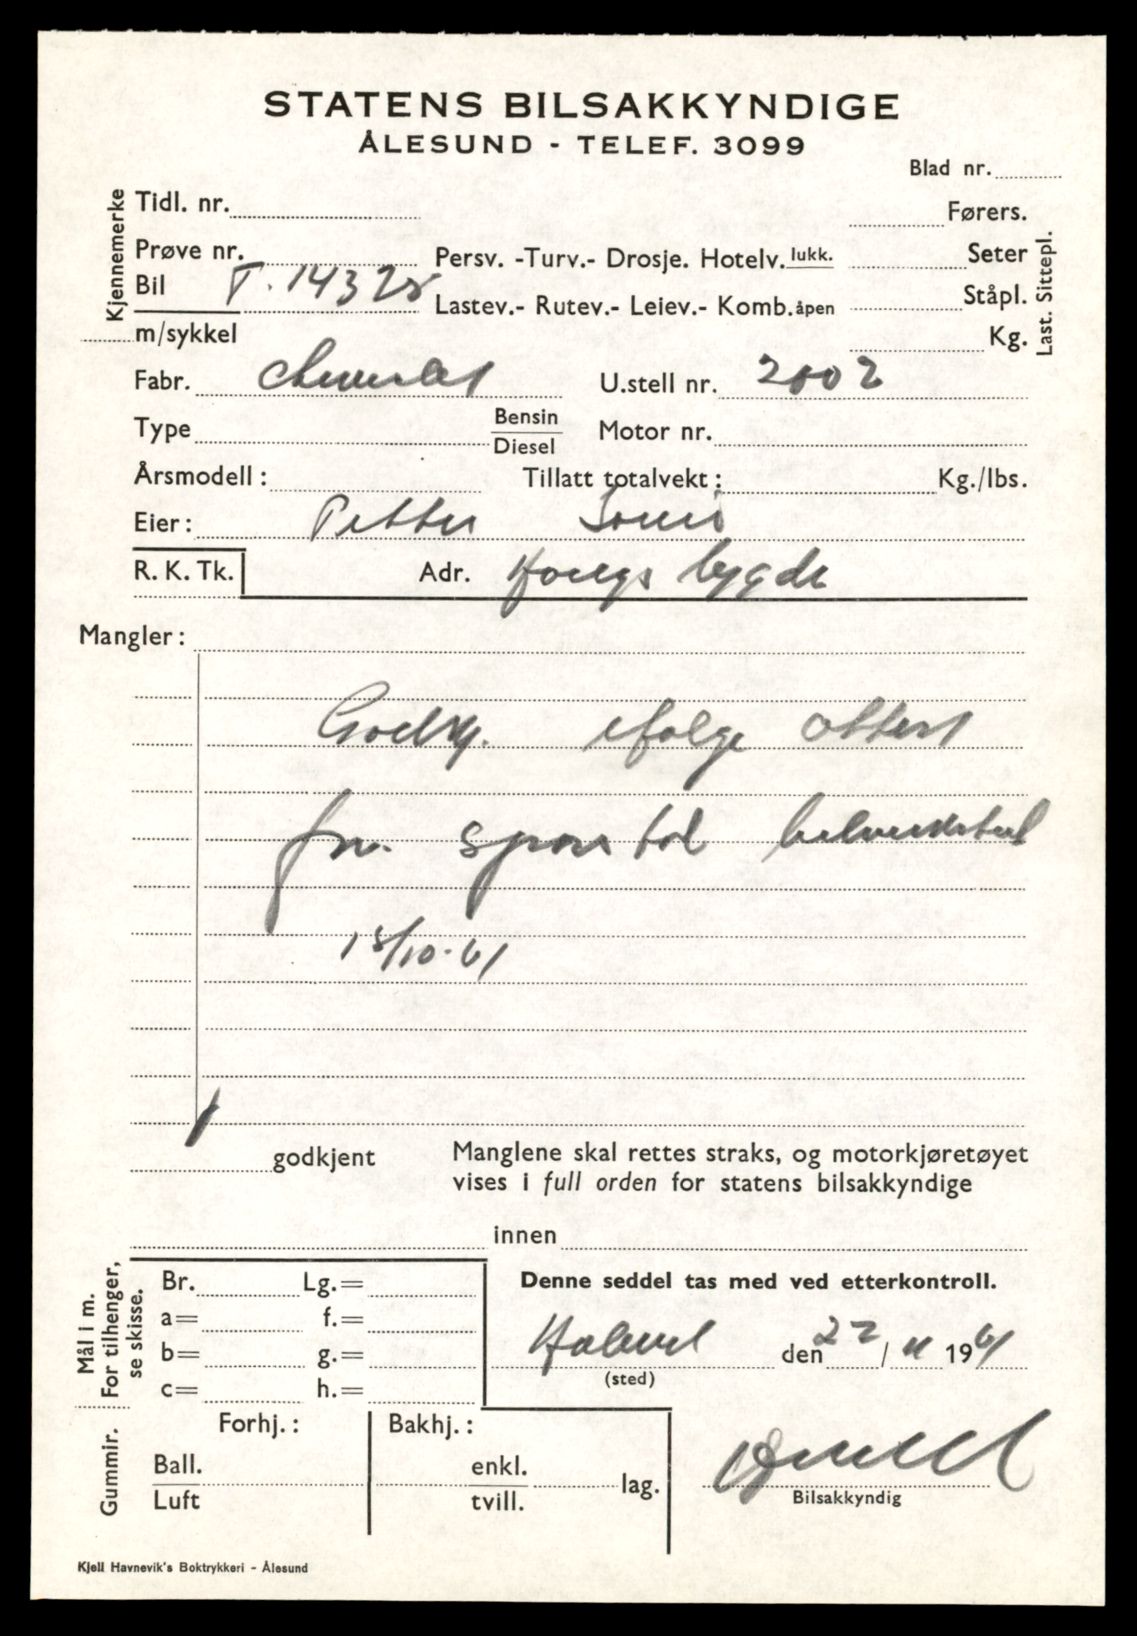 STATENS BILSAKKYNDIGE
ÅLESUND - TELEF. 3099
Blad nr.
Kjennemerke
Tidl. nr.
Førers.
Prøve nr.
Persv. -Turv.- Drosje. Hotelv. lukk.
Seter
Bil T. 14328
Lastev.- Rutev.- Leiev.- Komb. åpen
Ståpl.
Last. Sittepl.
m/sykkel
Kg.
Fabr. Chevrolet U.stell nr. 2002
Type Bensin
Diesel
Motor nr.
Årsmodell : Tillatt totalvekt : Kg./lbs.
Eier : Petter
R. K. Tk. Adr. bygde
Mangler :
Godkj. ifølge attest
fra bilverksted
18/10-61
godkjent
Manglene skal rettes straks, og motorkjøretøyet
vises i full orden for statens bilsakkyndige
innen
Mål i m.
For tilhenger,
se skisse.
Br. Lg.=
a= f.=
b= g.=
c= h.=
Denne seddel tas med ved etterkontroll.
den 22 / 11 1961
(sted)
Gummir.
Forhj. : Bakhj. :
Ball.
Luft
enkl.
tvill.
lag.
Bilsakkyndig
Kjell Havnevik's Boktrykkeri - Ålesund